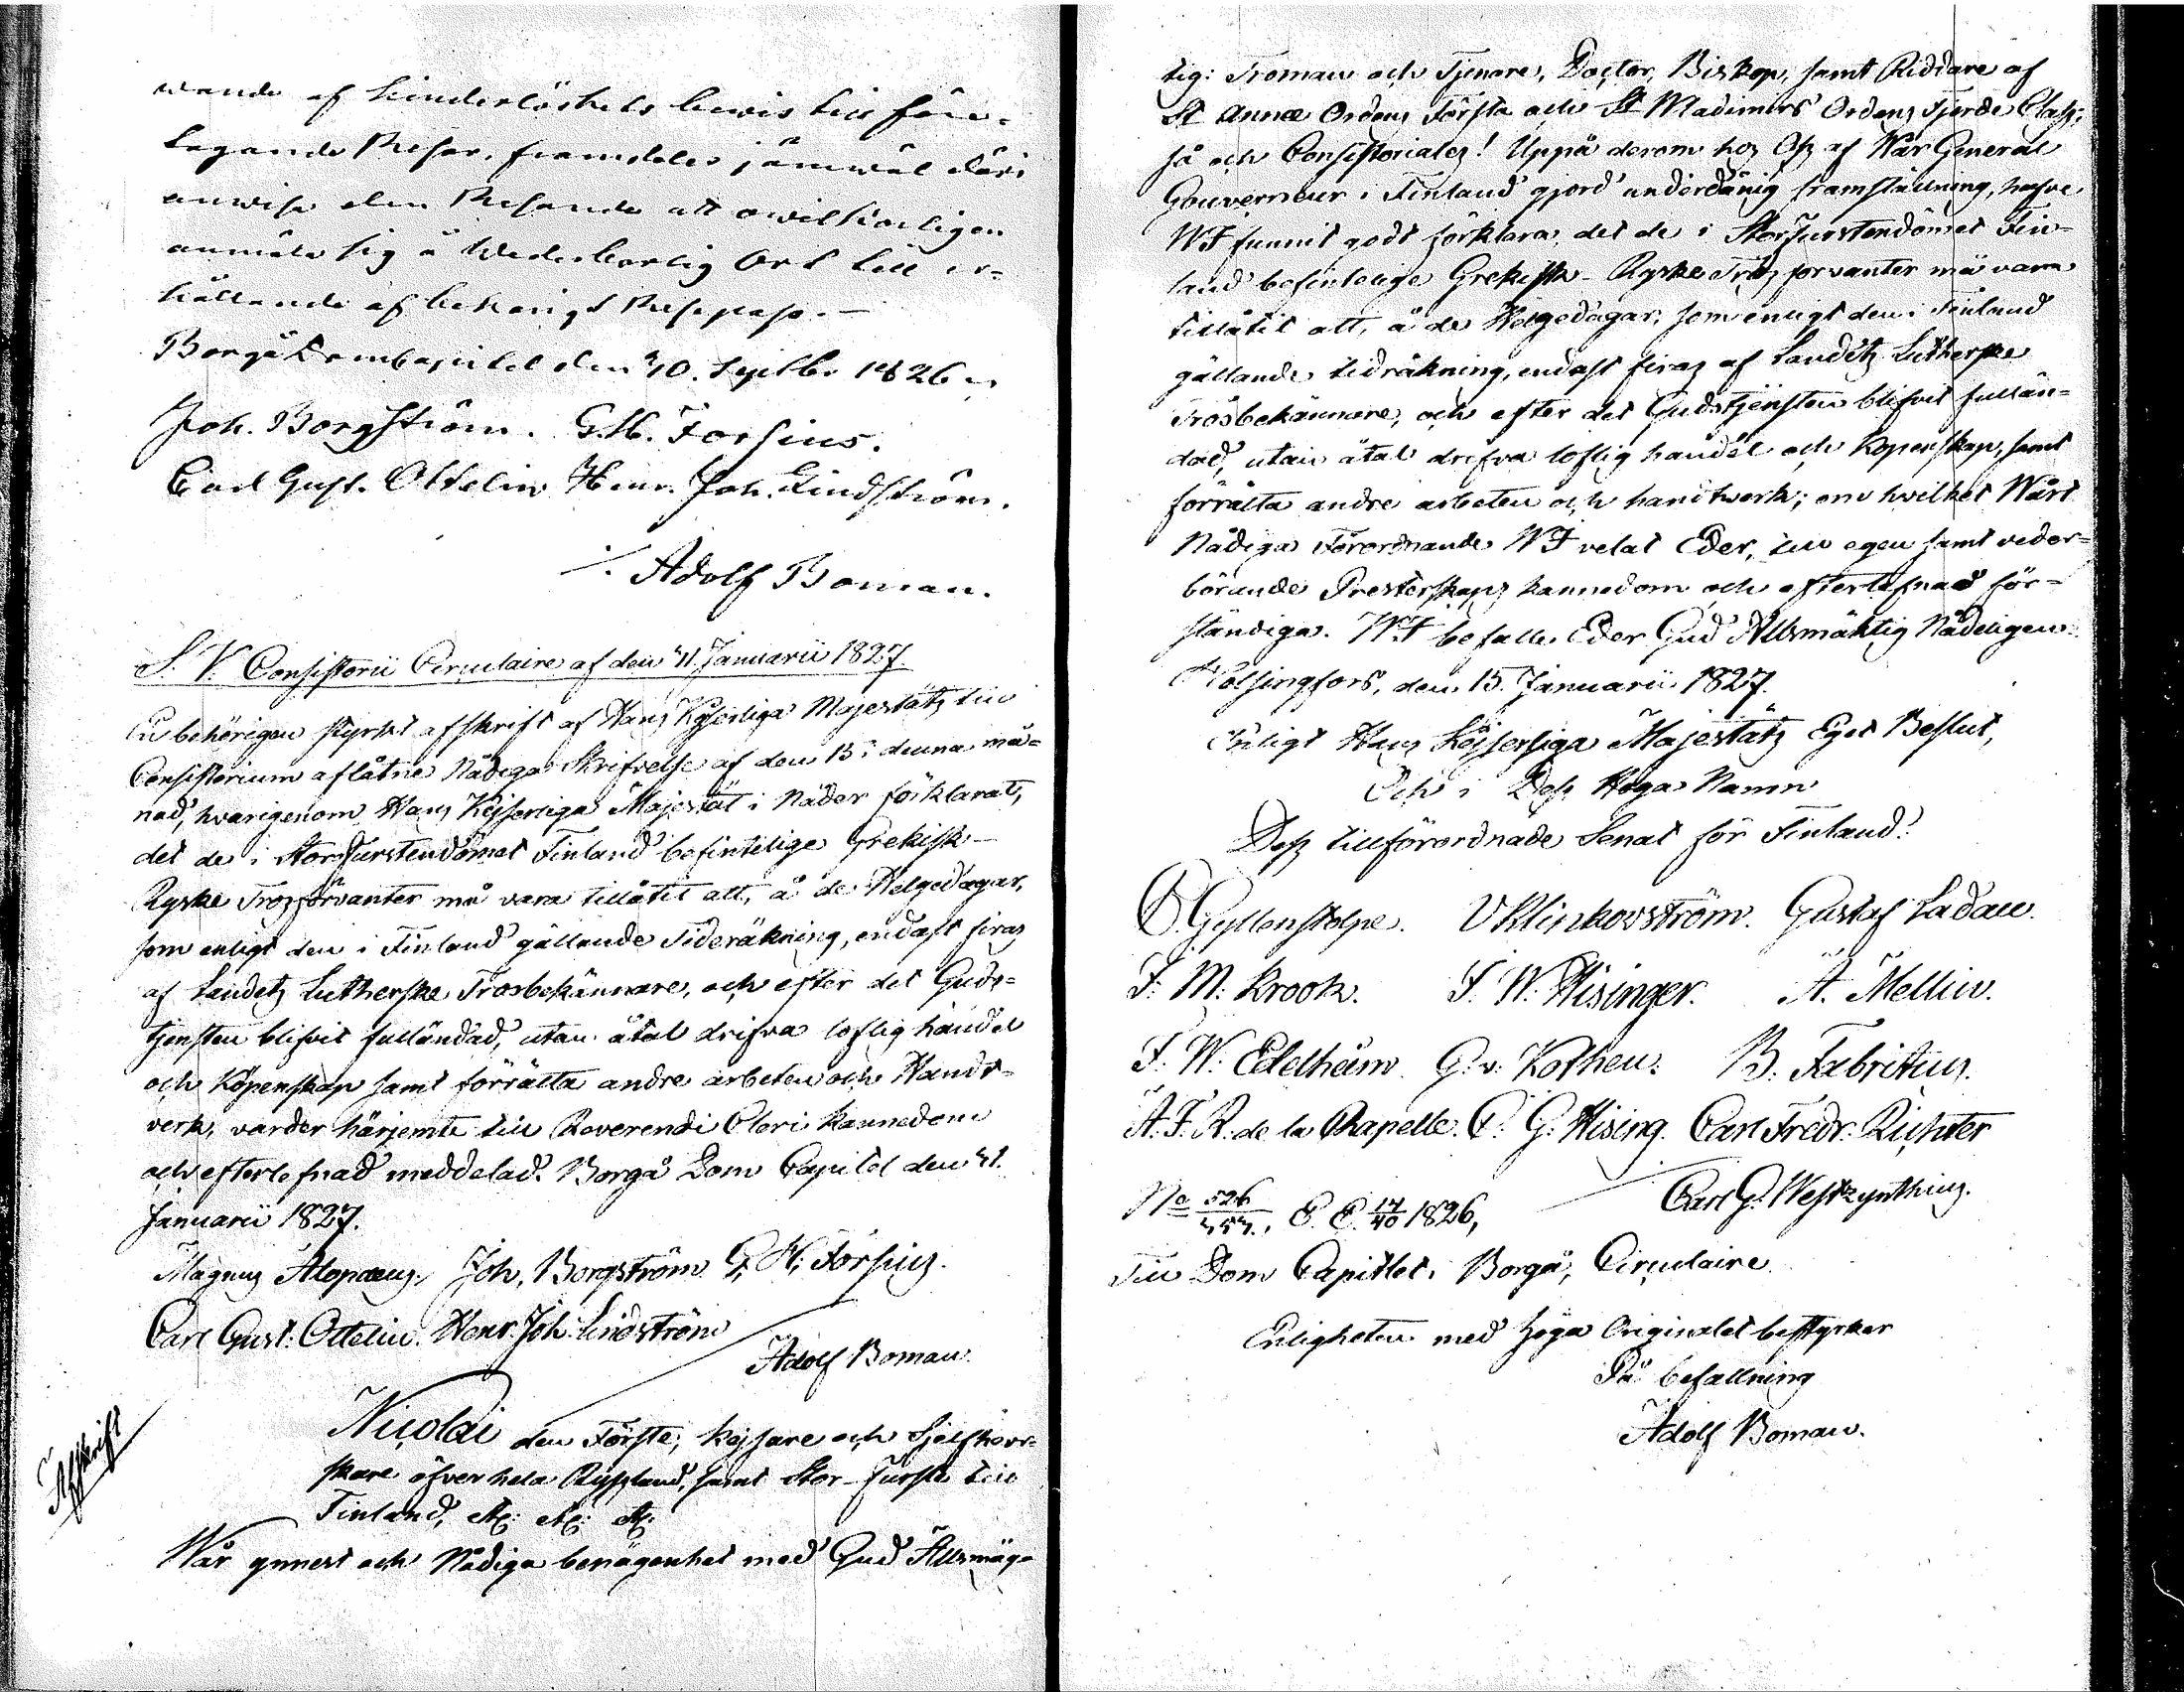 wande af hinderlöshets bewis till före-
tagande Resor, framdeles jämwäl däri
anwisa den Resande att owilkorligen
anmäla sig å Wederbörlig Ort till er-
hållande af behörigt Respass.—
Borgå Domkapitel den 30. Septbr 1826
Joh. Borgström. G. H. Forsius.
Carl Gust. Ottelin Henr. Joh. Lindström.
/. Adolf Boman.
S. V. Consistorii Circulaire af den 31 Januarii 1827.
En behörigen styrkt afskrift af Hans Kejserliga Majestäts till
Consistorium aflåtne Nådiga Skrifvelse af den 15 i denna må-
nad, hvarigenom Hans Kejserliga Majestät i Nåder förklarat,
det de i StorFurstendömet Finland befintelige Grekisk-
Ryske Trosförvanter må vara tillåtit att, å de Helgedagar,
som enligt den i Finland gällande Tideräkning, endast firas
af Landets Lutherske Trosbekännare, och efter det Guds-
tjensten blifvit fulländad, utan åtal drifva loflig handel
och Köpenskap samt förrätta andre arbeten och Handt-
verk, varder härjemte till Reverendi Cleri kännedom
och efterlefnad meddelad. Borgå Dom Capitel den 31.
Januarii 1827.
Magnus Alopæus, Joh, Borgström G. H. Forsius.
Carl Gust. Ottelin. Henr. Joh. Lindström
Adolf Boman.
Afskrift
Nicolai den Förste, Kejsare och Sjelfherr-
skare öfver hela Ryssland, samt Stor-Furste till
Finland, etc: etc: etc.
Wår ynnest och Nådiga benägenhet med Gud Allsmäg-
tig: Troman och Tjenare, Doctor, Biskop, samt Riddare af
St Annæ Ordens Första och St Wladimirs Ordens Fjerde Class;
så och Consistoriales! Uppå derom hos Oss af Wår General
Gouverneur i Finland gjord underdånig framställning, hafve
WJ funnit godt förklara, det de i StorFurstendömet Fin-
land befintelige Grekisk-Ryske Trosforvanter må vara
tillåtit att, å de Helgedagar, som enligt den i Finland
gällande tidräkning, endast firas af Landets Lutherske
Trosbekännare, och efter det Gudstjensten blifvit fullän-
dad, utan åtal drifva loflig handel och Köpenskap, samt
förrätta andre arbeten och handtwerk; om hvilket Wårt
Nådiga Förordnande WJ velat Eder, till egen samt veder-
börande Presterskaps kännedom och efterlefnad för-
ständiga. WJ befalle Eder Gud Allsmäktig Nådeligen.
Helsingfors, den 15. Januarii 1827.
Enligt Hans Kejserliga Majestäts Eget Beslut,
Och i Dess Höga Namn
Dess tillförordnade Senat för Finland:
C. Gyllenstolpe. V Klinkovström. Gustaf Ladau.
F. M. Krook. F. W. Hisinger. A. Mellin.
F. W. Edelheim G. v. Kothen. B. Fabritius.
A. F. R. de la Chapelle. C. G. Hising. Carl Fredr. Richter
Carl G. Westzynthius.
No 526/357., E. E. 17/40 1826,
Till Dom Capitlet i Borgå, Circulaire
Enligheten med höga Originalet bestyrker
På befallning
Adolf Boman.